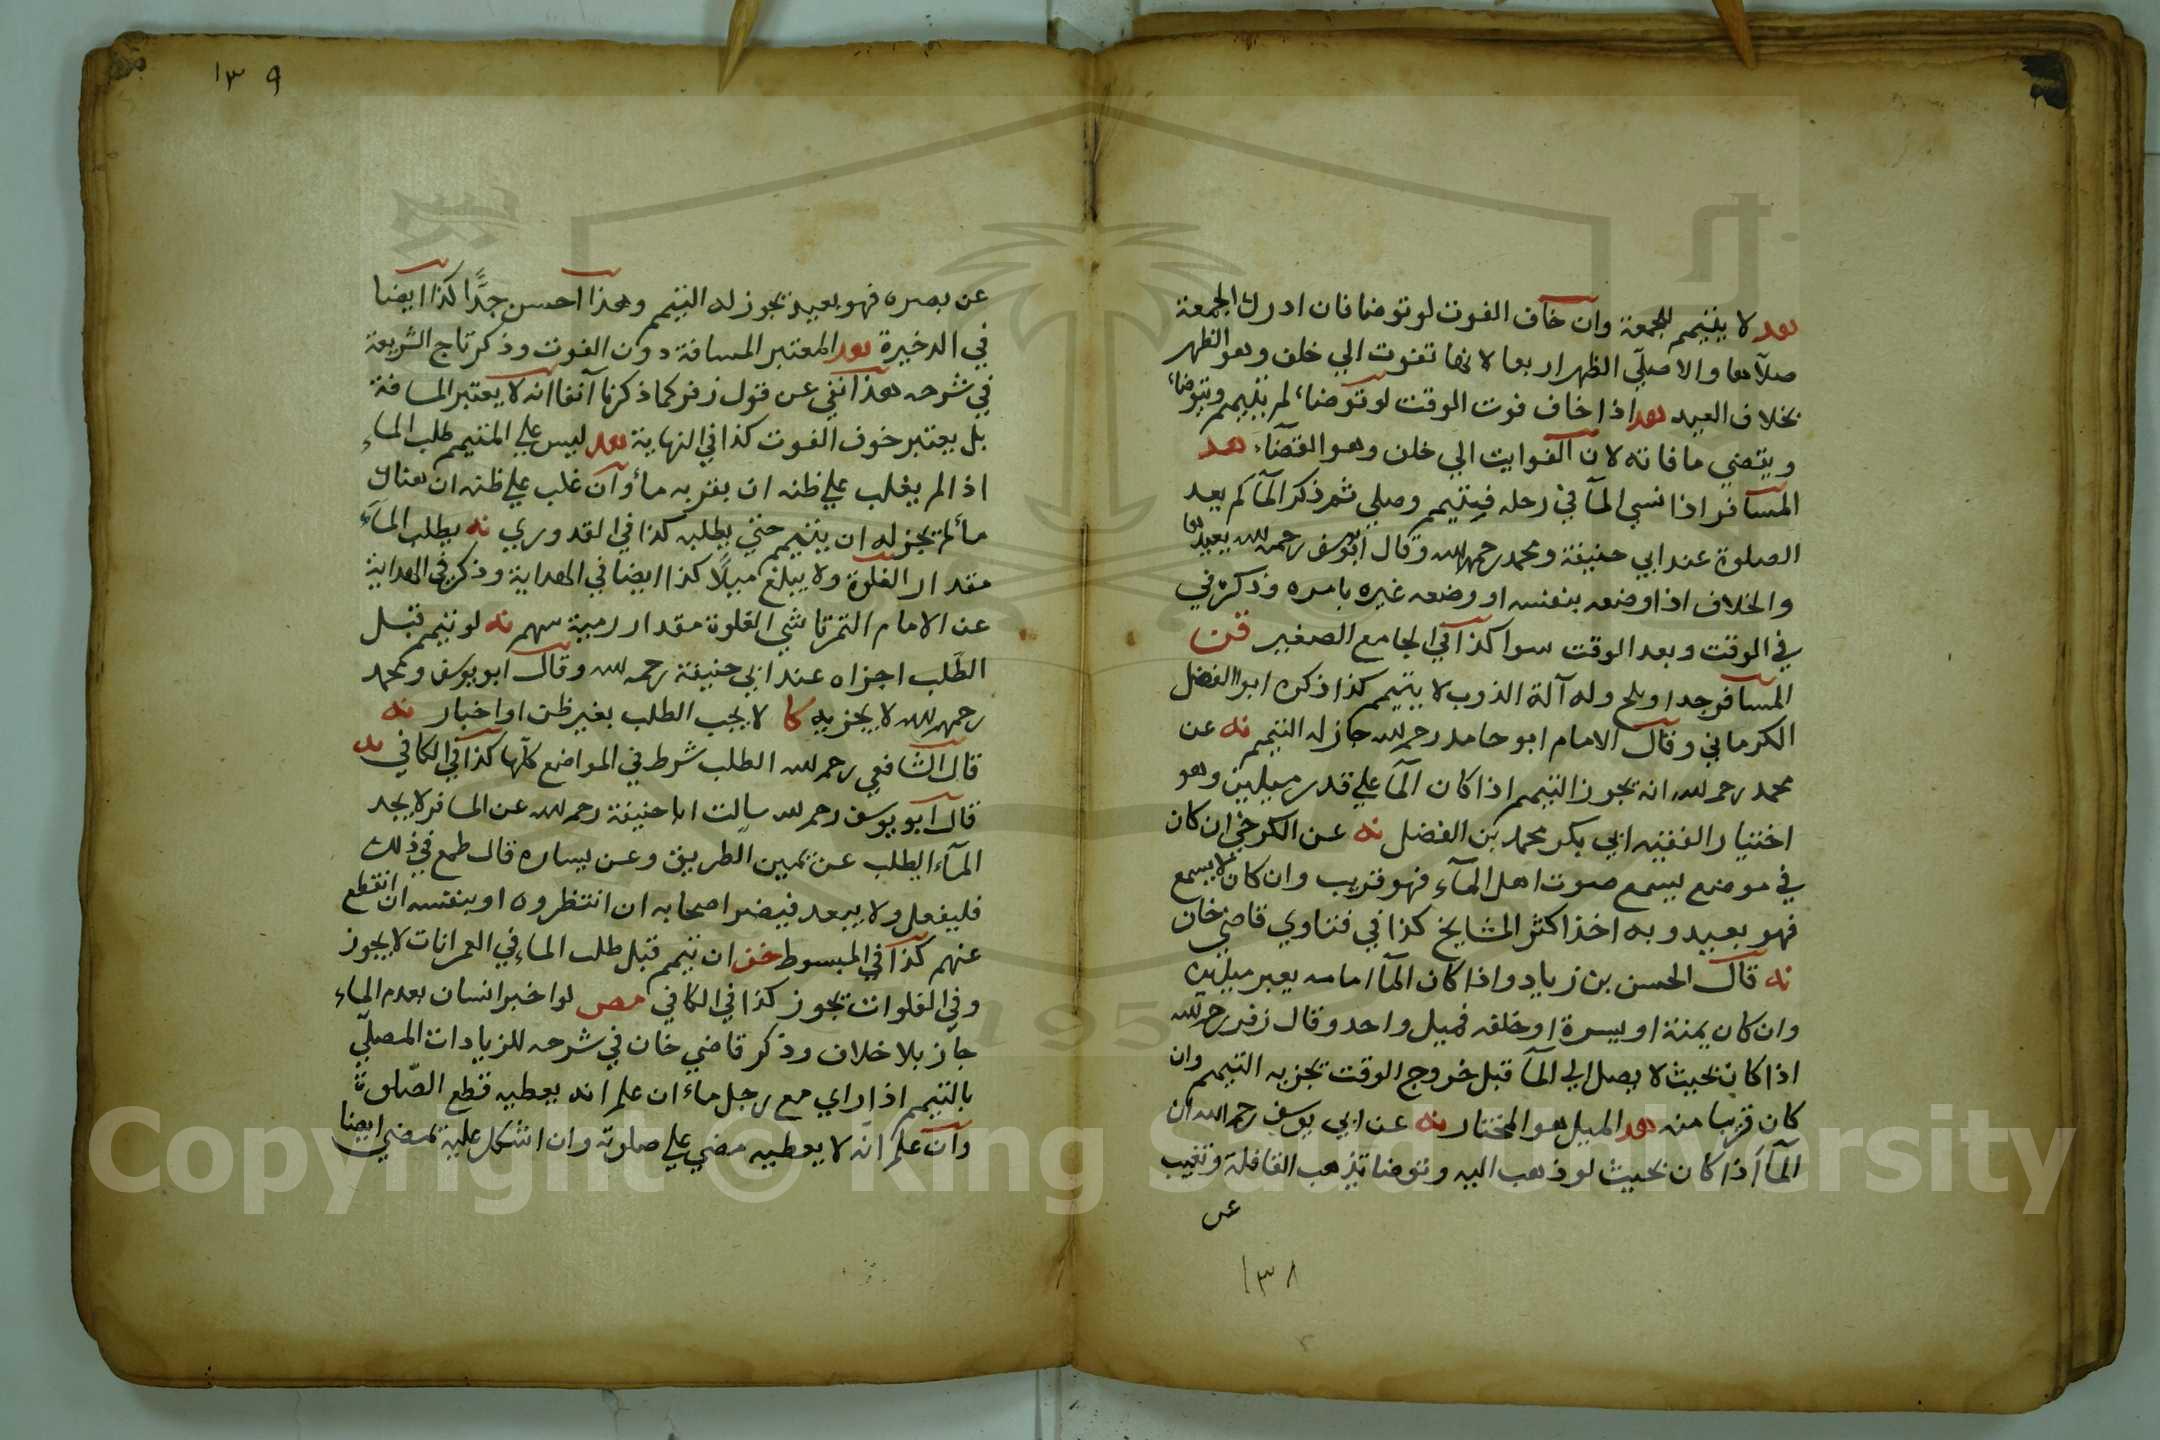 هد لا يتيمم للجمعة وان خاف الفوت لو توضا فان ادرك الجمعة
صلاها والا صلي الظهر اربعا لانها تفوت الي خلف وهو الظهر
بخلاف العيد هد اذا خاف فوت الوقت لو توضاء لم يتيمم ويتوضاء
ويقضي ما فاته لان الفوايت الي خلف وهو القضاء هد
المسافر اذا نسي الماء في رحله فيتيمم وصلي ثم ذكر الماء لم يعد
الصلوة عند ابي حنيفة ومحمد رحمهما الله وقال ابو يوسف رحمه الله يعيدها
والخلاف اذا وضعه بنفسه او وضعه غيره بامره وذكره في
في الوقت وبعد الوقت سوا كذا في الجامع الصغير قن
المسافر جد او ثلج وله آلة الذوب لا يتيمم كذا ذكره ابو الفضل
الكرماني وقال الامام ابو حامد رحمه الله جاز له التيمم نه عن
محمد رحمه الله انه يجوز التيمم اذا كان الماء علي قدر ميلين وهو
اختيار الفقيه ابي بكر محمد بن الفضل نه عن الكرخي ان كان
في موضع يسمع صوت اهل الماء فهو قريب وان كان لا يسمع
فهو بعيد وبه اخذ اكثر المشايخ كذا في فتاوي قاضي خان
نه قال الحسن بن زياد واذا كان الماء امامه يعبر ميلين
وان كان يمنة او يسرة او خلفه فميل واحد وقال زفر رحمه الله
اذا كان بحيث لا يصل الي الماء قبل خروج الوقت تجزيه التيمم وان
كان قريبا منه هد الميل هو المختار نه عن ابي يوسف رحمه الله ان
الماء اذا كان بحيث لو ذهب اليه وتوضا تذهب القافلة وتغيب
عن
١٣٨
١٣٩
عن بصره فهو بعيد تجوز له التيمم وهذا احسن جدًّا كذا ايضا
في الذخيرة هد المعتبر المسافة دون الفوت وذكر تاج الشريعة
في شرحه هذا نفي عن قول زفر كما ذكرنا آنفا انه لا يعتبر المسافة
بل يعتبر خوف الفوت كذا في النهاية هد ليس علي المتيمم طلب الماء
اذا لم يغلب علي ظنه ان بقربه ماء وان غلب علي ظنه ان هناك
ماء لم تجز له ان يتيمم حتي يطلبه كذا في القدوري نه يطلب الماء
مقدار الغلوة ولا يبلغ ميلًا كذا ايضا في الهداية وذكر في الهداية
عن الامام التمرتاشي الغلوة مقدار رمية سهم نه لو تيمم قبل
الطلب اجزاه عند ابي حنيفة رحمه الله وقال ابو يوسف ومحمد
رحمهما الله لا يجزيه كا لا يجب الطلب بغير ظن او اخبار نه
قال الشافعي رحمه الله الطلب شرط في المواضع كلها كذا في الكافي نه
قال ابو يوسف رحمه الله سالت ابا حنيفة رحمه الله عن المسافر لا يجد
الماء ايطلب عن يمين الطريق وعن يساره قال طمع في ذلك
فليفعل ولا يبعد فيضر اصحابه ان انتظروه او بنفسه ان انقطع
عنهم كذا في المبسوط خف ان تيمم قبل طلب الماء في العمرانات لا يجوز
وفي الفلوات تجوز كذا في الكافي مص لو اخبر انسان بعدم الماء
جاز بلا خلاف وذكر قاضي خان في شرحه للزيادات المصلي
بالتيمم اذا راي مع رجل ماء ان علم انه يعطيه قطع الصلوة
وان علم انه لا يعطيه مضي علي صلوته وان اشكل عليه تمضي ايضا